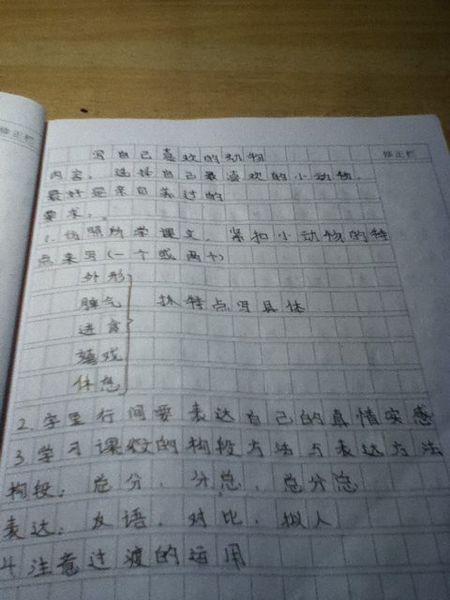 修正栏
修正栏
写自己喜欢的动物
内容。选择自己最喜欢的小动物，
最好要亲自养过的
要求：。
1.仿照所学课文，紧扣小动物的特
点来写(一个或两个)
外形
脾气
抓特点写具体
进食
嬉戏
休息
2.字里行间要表达自己的真情实感
3.学习课文的构段方法与表达方法
构段：总分，分总，总分总
表达：反语，对比，拟人
4.注意过渡的运用